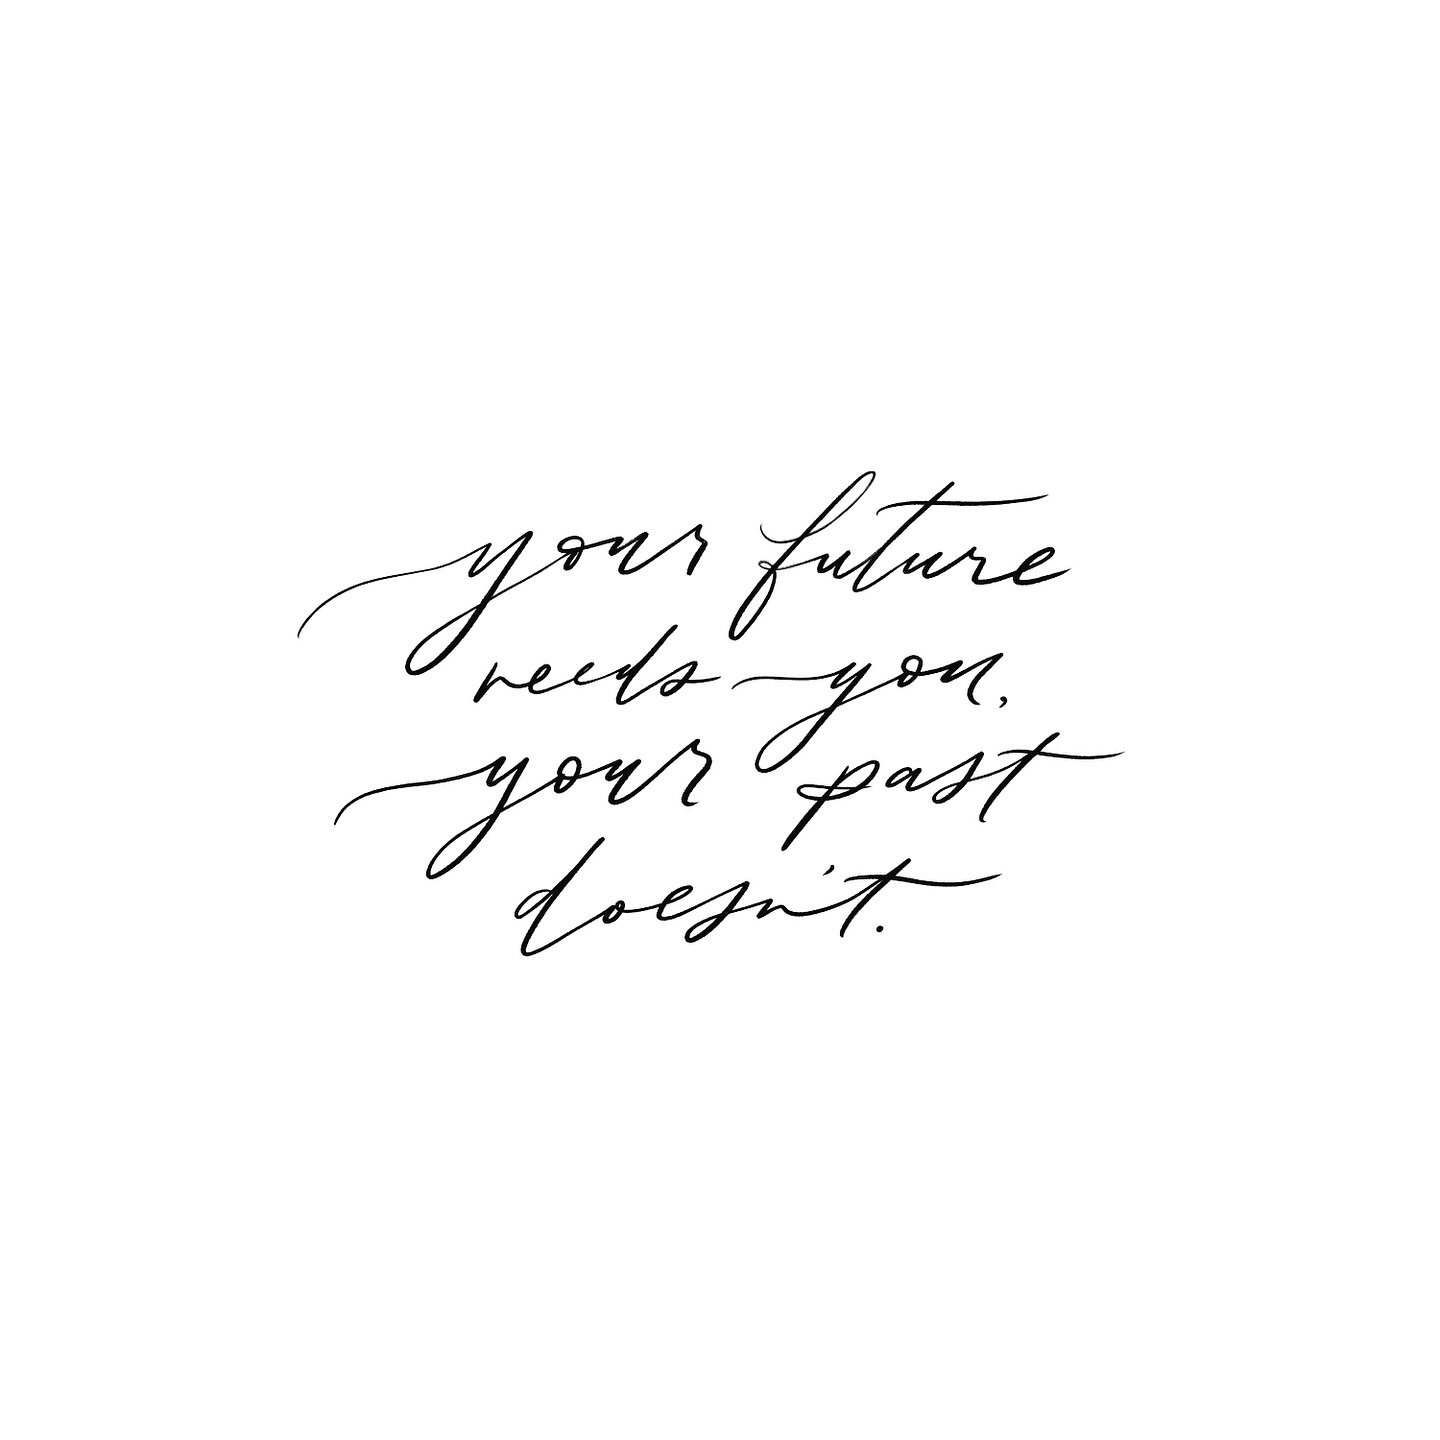 your future
needs you,
your past
doesn't.